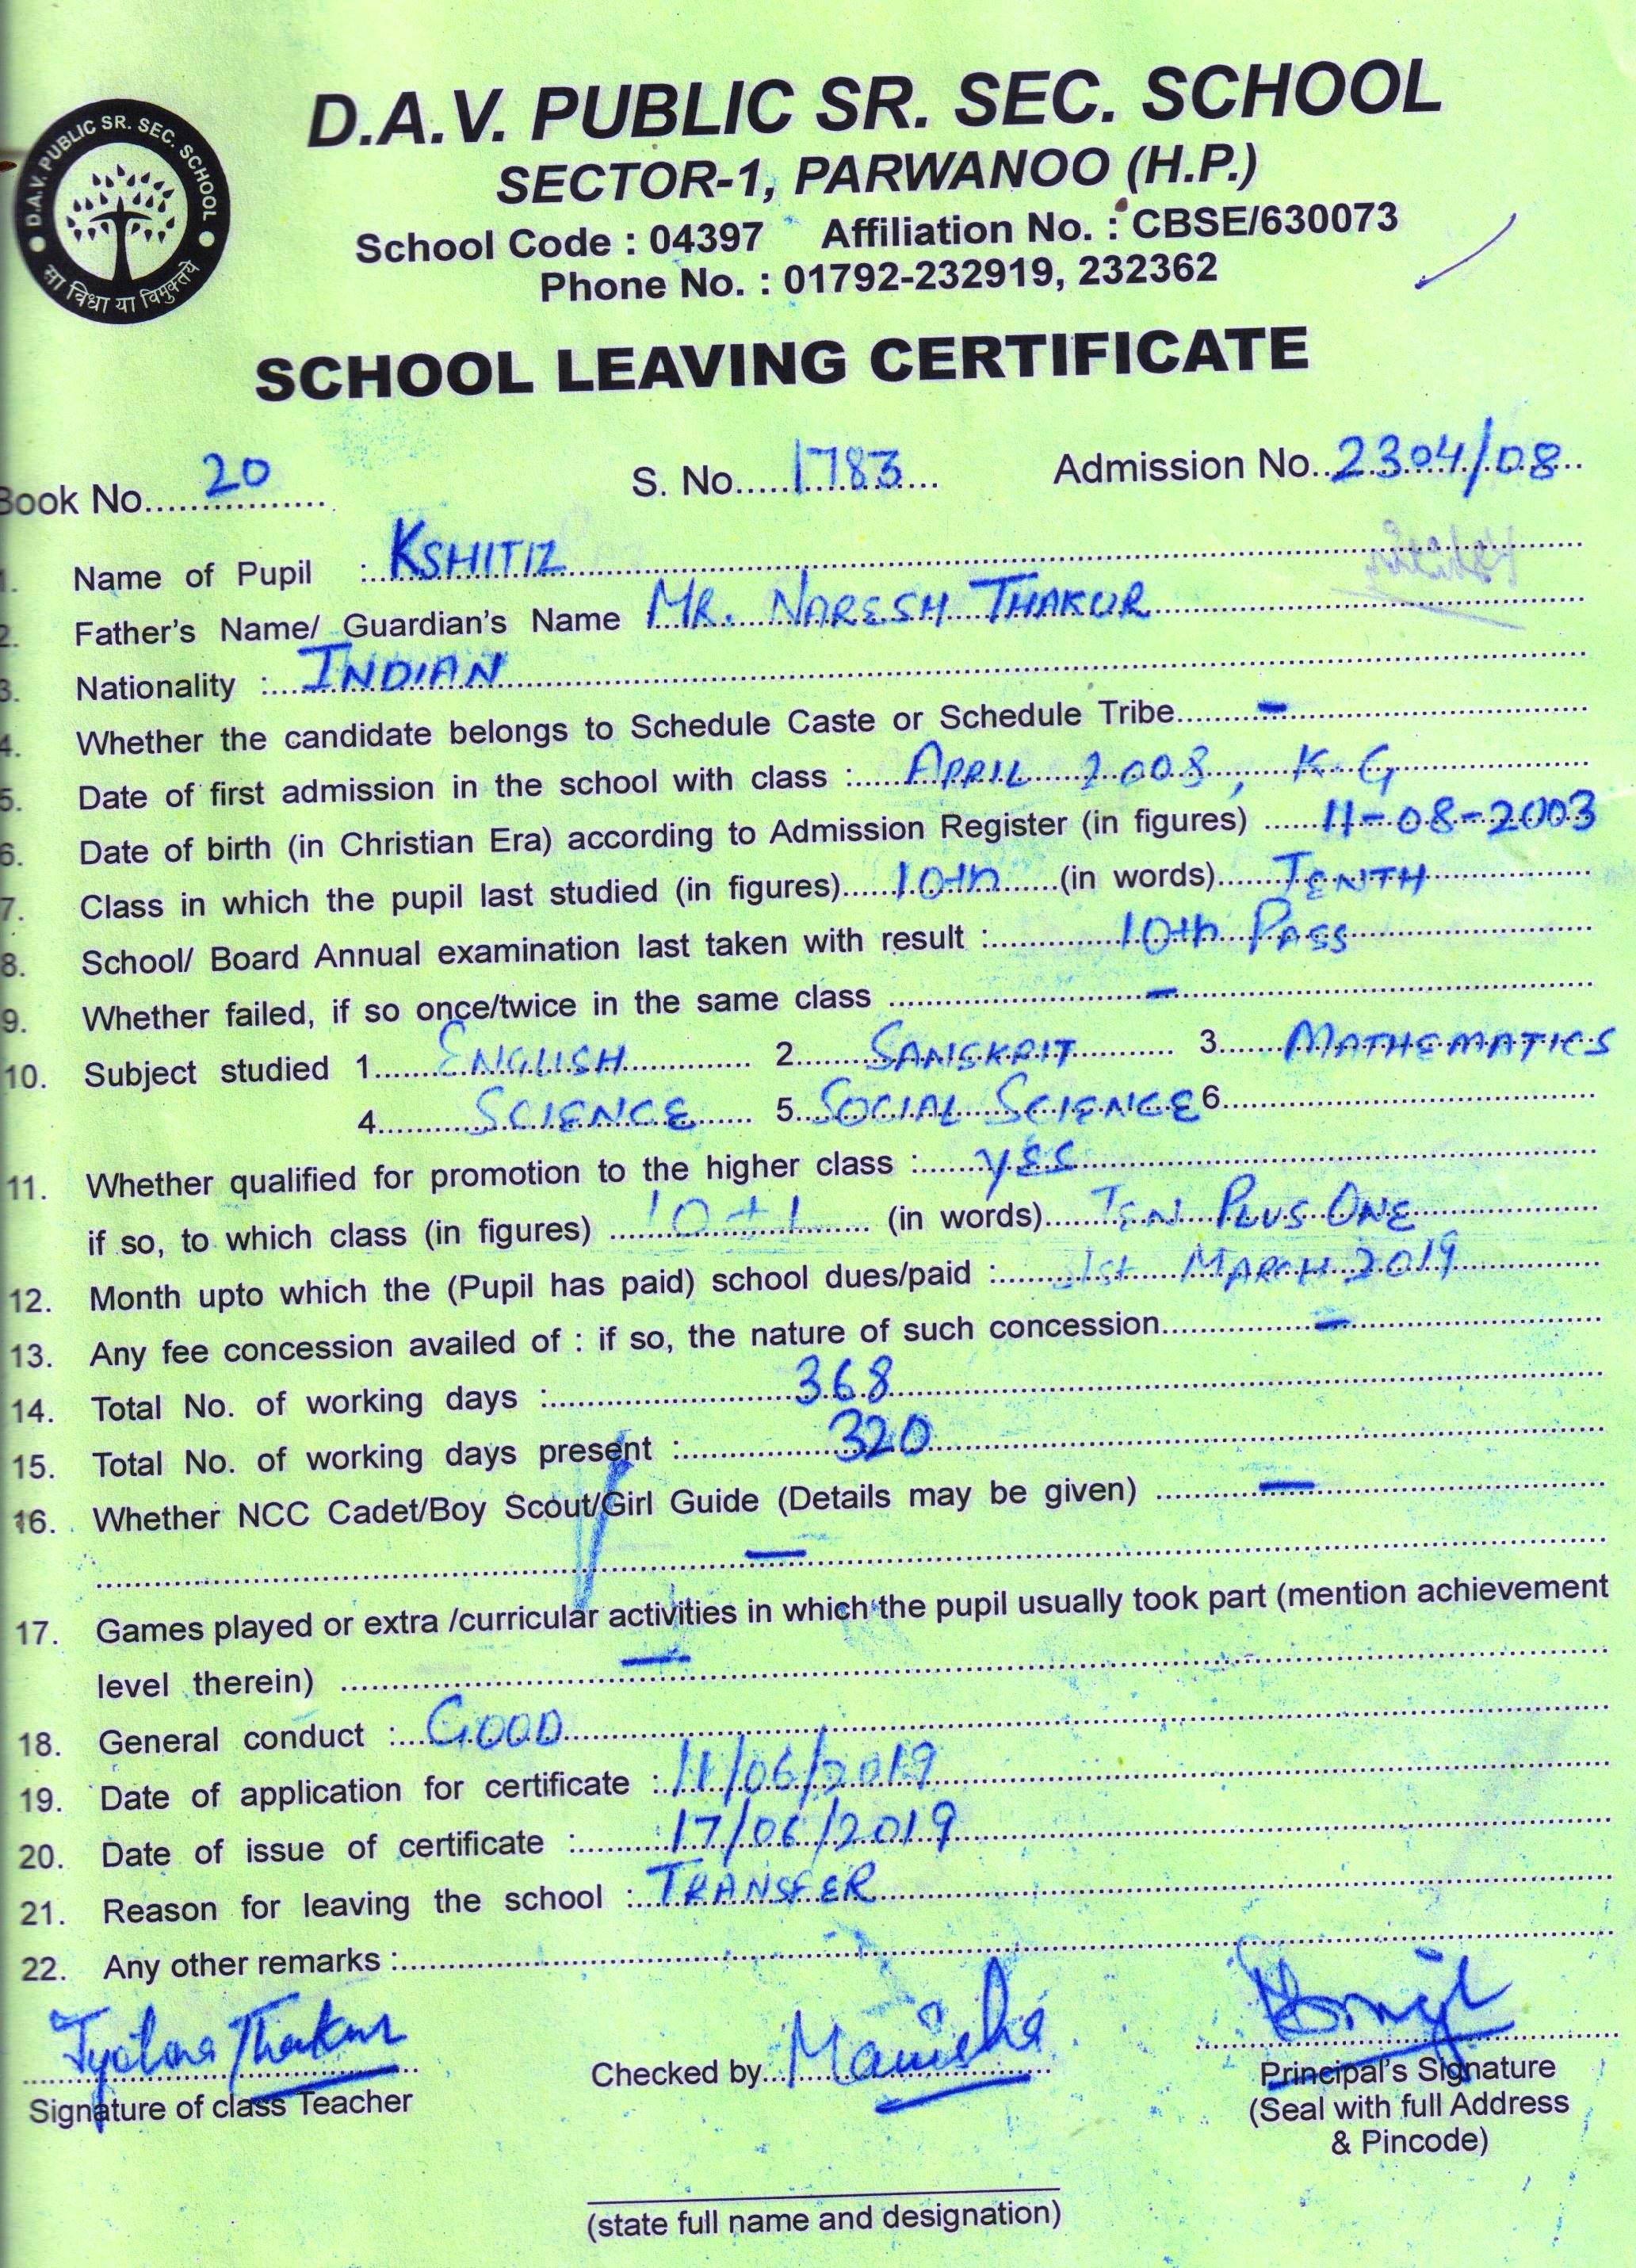 D.A.V. PUBLIC SR. SEC. SCHOOL
D.A.V. PUBLIC SR. SEC. SCHOOL
सा विधा या विमुक्तये
SECTOR-1, PARWANOO (H.P.)
School Code : 04397 Affiliation No. : CBSE/630073
Phone No. : 01792-232919, 232362
SCHOOL LEAVING CERTIFICATE
Book No. 20 S. No. 1783 Admission No. 2304/08
1. Name of Pupil : KSHITIZ
2. Father's Name/ Guardian's Name MR. NARESH THAKUR
3. Nationality : INDIAN
4. Whether the candidate belongs to Schedule Caste or Schedule Tribe -
5. Date of first admission in the school with class : APRIL 2008, K.G
6. Date of birth (in Christian Era) according to Admission Register (in figures) 11-08-2003
7. Class in which the pupil last studied (in figures) 10th (in words) TENTH
8. School/ Board Annual examination last taken with result : 10th PASS
9. Whether failed, if so once/twice in the same class -
10. Subject studied 1. ENGLISH 2. SANSKRIT 3. MATHEMATICS
4. SCIENCE 5. SOCIAL SCIENCE 6.
11. Whether qualified for promotion to the higher class : YES
if so, to which class (in figures) 10+1 (in words) TEN PLUS ONE
12. Month upto which the (Pupil has paid) school dues/paid : 31st MARCH 2019
13. Any fee concession availed of : if so, the nature of such concession -
14. Total No. of working days : 368
15. Total No. of working days present : 320
16. Whether NCC Cadet/Boy Scout/Girl Guide (Details may be given) -
-
17. Games played or extra /curricular activities in which the pupil usually took part (mention achievement
level therein) -
18. General conduct : GOOD
19. Date of application for certificate : 11/06/2019
20. Date of issue of certificate : 17/06/2019
21. Reason for leaving the school : TRANSFER
22. Any other remarks :
Jyotsna Thakur
Signature of class Teacher
Checked by Manisha
Principal's Signature
(Seal with full Address
& Pincode)
(state full name and designation)